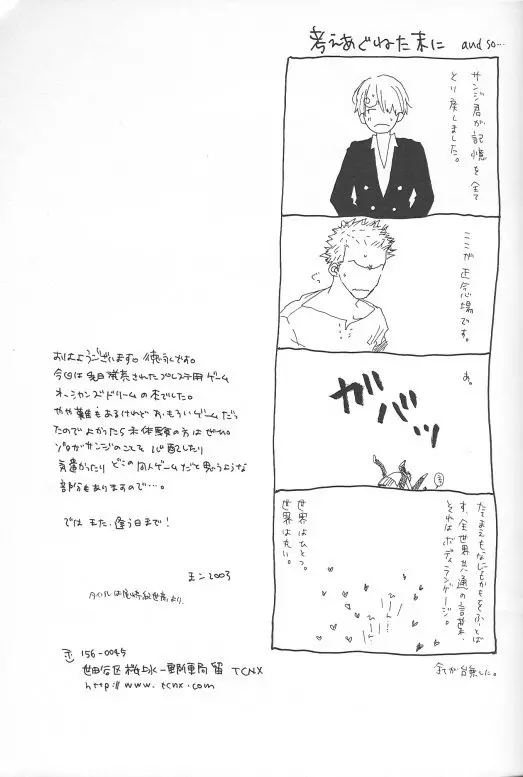 考えあぐねた末に and so…
サンジ君が記憶を全て
とり戻しました。
ここが正念場です。
あ。
ガバッ
たてまえもなにもかもをふっとば
す、全世界共通の言葉、
それはボディランゲージ。
世界はひとつ。
世界は丸い。
全てが台無しに。
おはようございます。徳川です。
今回は先日発売されたプレステ用ゲーム
オーシャンズドリームの本でした。
やや難もあるけれどおもろいゲームだっ
たのでよかったら未体験の方はぜひ。
ゾロがサンジのことを心配したり
気遣かったりどこの同人ゲームだと思うような
部分もありますので…。
では また、逢う日まで!
王ン2003
タイトルは尾崎紀世彦より。
〒156-0045
世田谷区桜上水一郵便局留 TCNX
http://www.tcnx.com